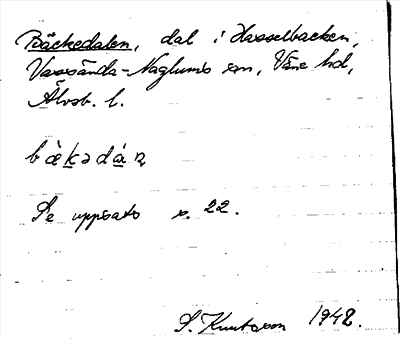 Bäckedalen, dal i Hasselbacken,
Vassända-Naglums sn, Väne hd,
Älvsb. l.
bæ̀kədȧ̀n
Se uppsats s. 22.
S. Knutsson 1942.